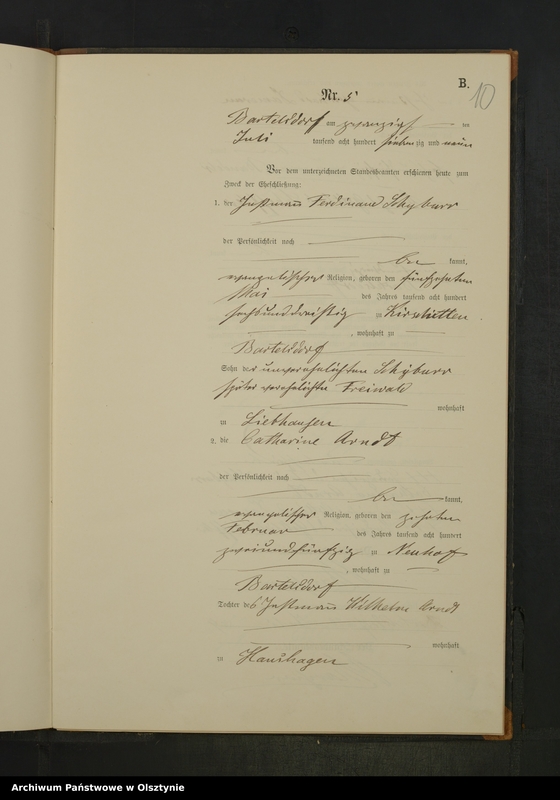 B.
10
Nr. 5
Bartelsdorf am zwanzigsten
Juli tausend acht hundert siebenzig und neun
Vor dem unterzeichneten Standesbeamten erschienen heute zum
Zweck der Eheschließung:
1. der Instmann Ferdinand Schyburr
der Persönlichkeit nach
be kannt,
evangelischer Religion, geboren den fünfzehnten
Mai des Jahres tausend acht hundert
sechsunddreißig zu
, wohnhaft zu
Bartelsdorf
Sohn der unverehelichten Schyburr
später verehelichte Freiwald
wohnhaft
in Liebhausen
2. die Catharine Arndt
der Persönlichkeit nach
be kannt,
evangelischer Religion, geboren den zehnten
Februar des Jahres tausend acht hundert
zweiundfünfzig zu Neuhof
, wohnhaft zu
Bartelsdorf
Tochter des Instmann Wilhelm Arndt
wohnhaft
in Haushagen
Archiwum Państwowe w Olsztynie